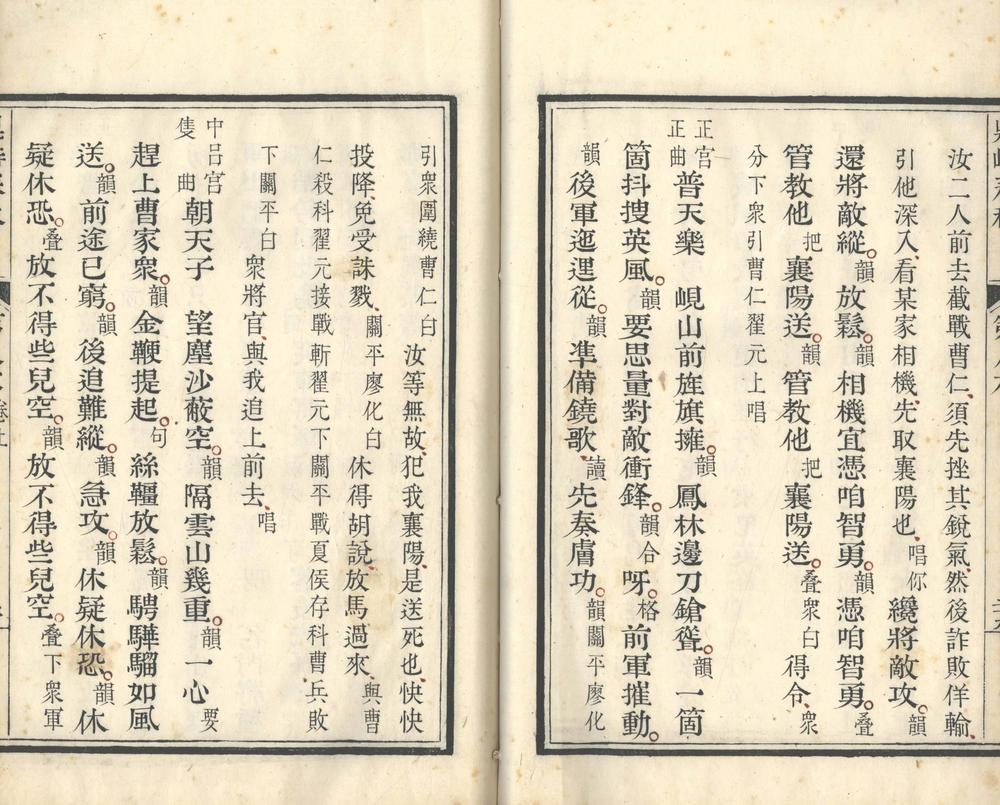 汝二人前去截戰曹仁、須先挫其銳氣、然後詐敗佯輸、
引他深入、看某家相機、先取襄陽也、唱你纔將敵攻。韻
還將敵縱。韻放鬆。韻相機宜憑咱智勇。韻憑咱智勇。疊
管教他把襄陽送。韻管教他把襄陽送。疊衆白得令、衆
分下衆引曹仁翟元上唱
正宮正曲普天樂 峴山前旌旗擁。韻鳳林邊刀鎗聳。韻一箇
箇抖搜英風。韻要思量對敵衝鋒。韻合呀。格前軍摧動。
韻後軍迤逦從。韻凖備鐃歌、讀先奏膚功。韻關平廖化
引衆圍繞曹仁白汝等無故、犯我襄陽、是送死也、快快
投降、免受誅戮、關平廖化白休得胡說、放馬過來、與曹
仁殺科翟元接戰斬翟元下關平戰夏侯存科曹兵敗
下關平白衆將官、與我追上前去、唱
中呂宮隻曲朝天子 望塵沙蔽空。韻隔雲山幾重。韻一心要
趕上曹家衆。韻金鞭提起。句絲韁放鬆。韻騁驊騮如風
送。韻前途已窮。韻後追難縱。韻急攻。韻休疑休恐。韻休
疑休恐。疊放不得些兒空。韻放不得些兒空。疊下衆軍